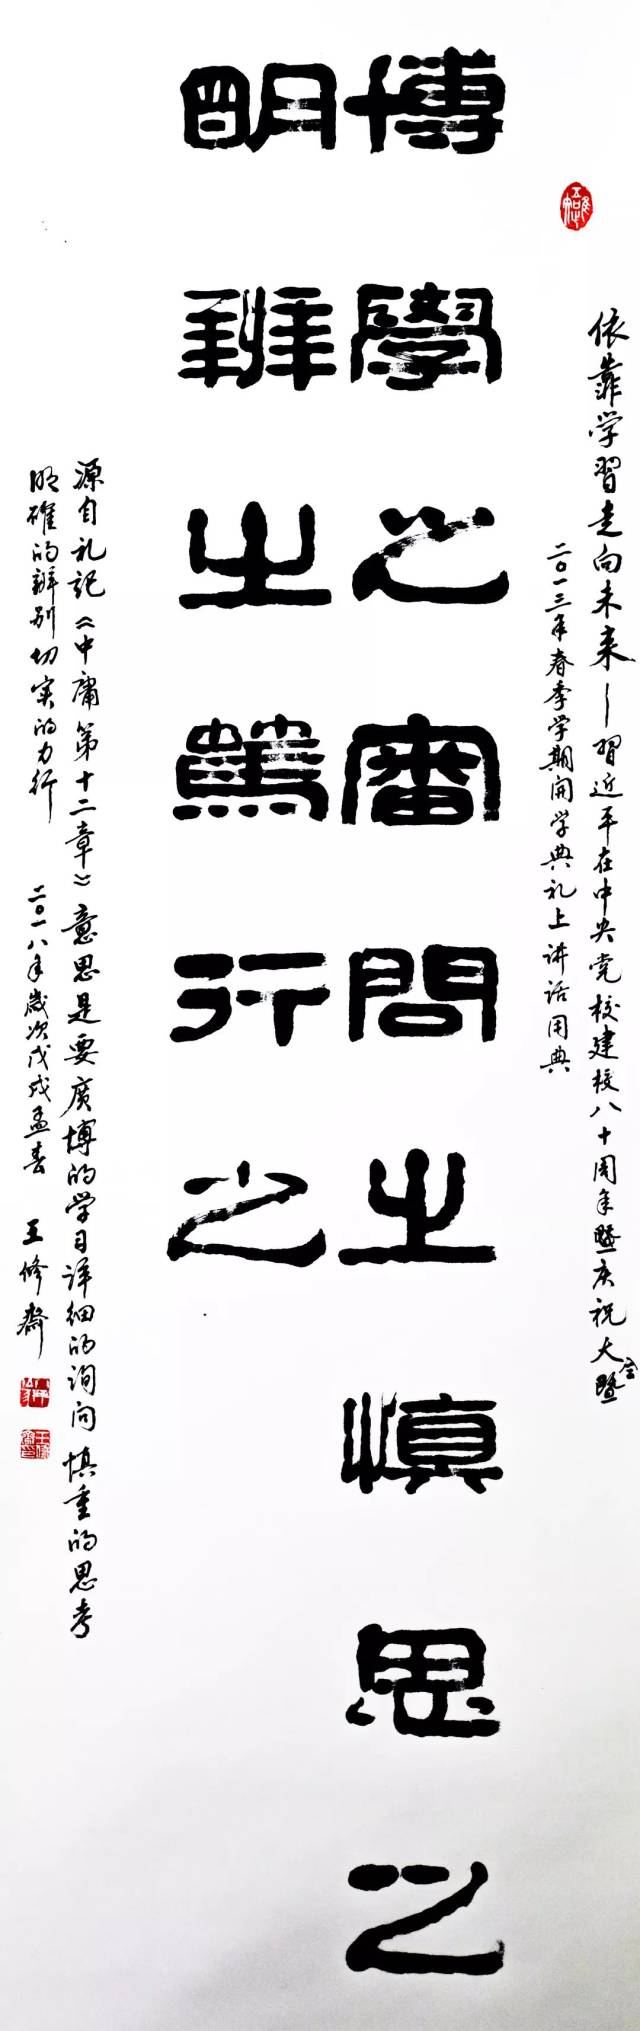 依靠学習走向未来—習近平在中央党校建校八十周年暨庆祝大会暨
二〇一三年春季学期開学典礼上讲话用典
博學之審問之慎思之
明辨之篤行之
源自礼記《中庸第十二章》意思是要廣博的学习详细的询问慎重的思考
明確的辨别切实的力行 二〇一八年歲次戊戌孟春 王修齋